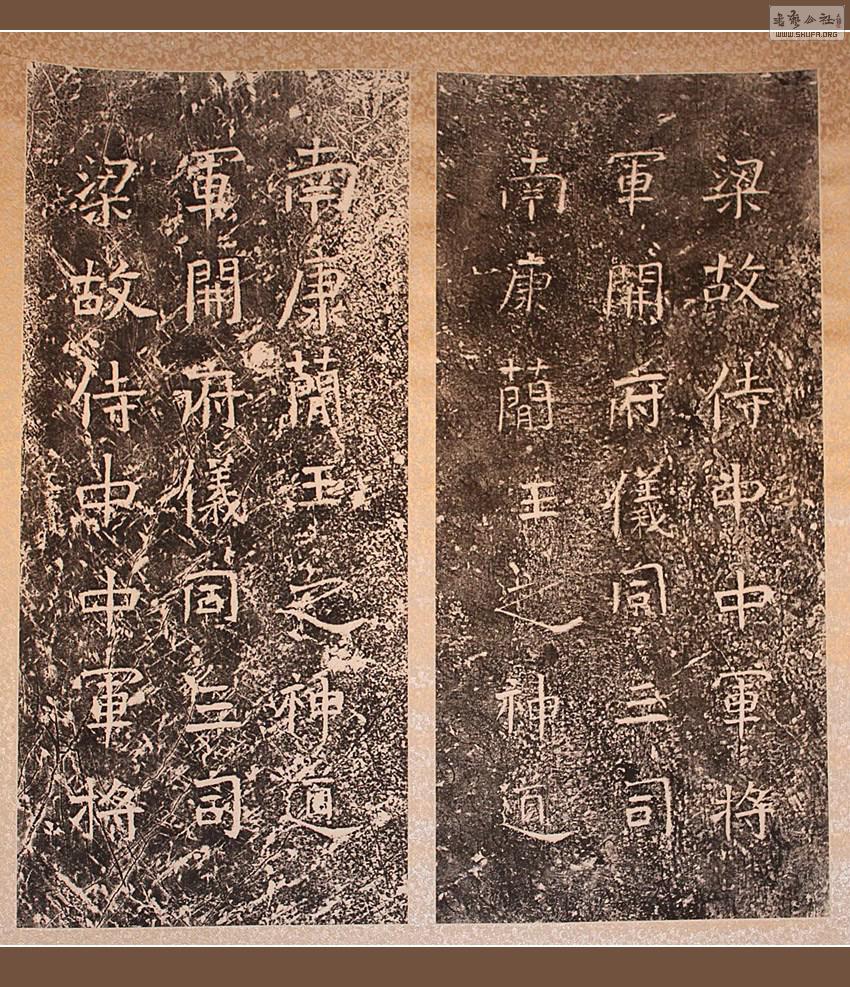 梁故侍中中軍將
軍開府儀同三司
南康蕳王之神道
梁故侍中中軍將
軍開府儀同三司
南康蕳王之神道
書藝公社
WWW.SHUFA.ORG